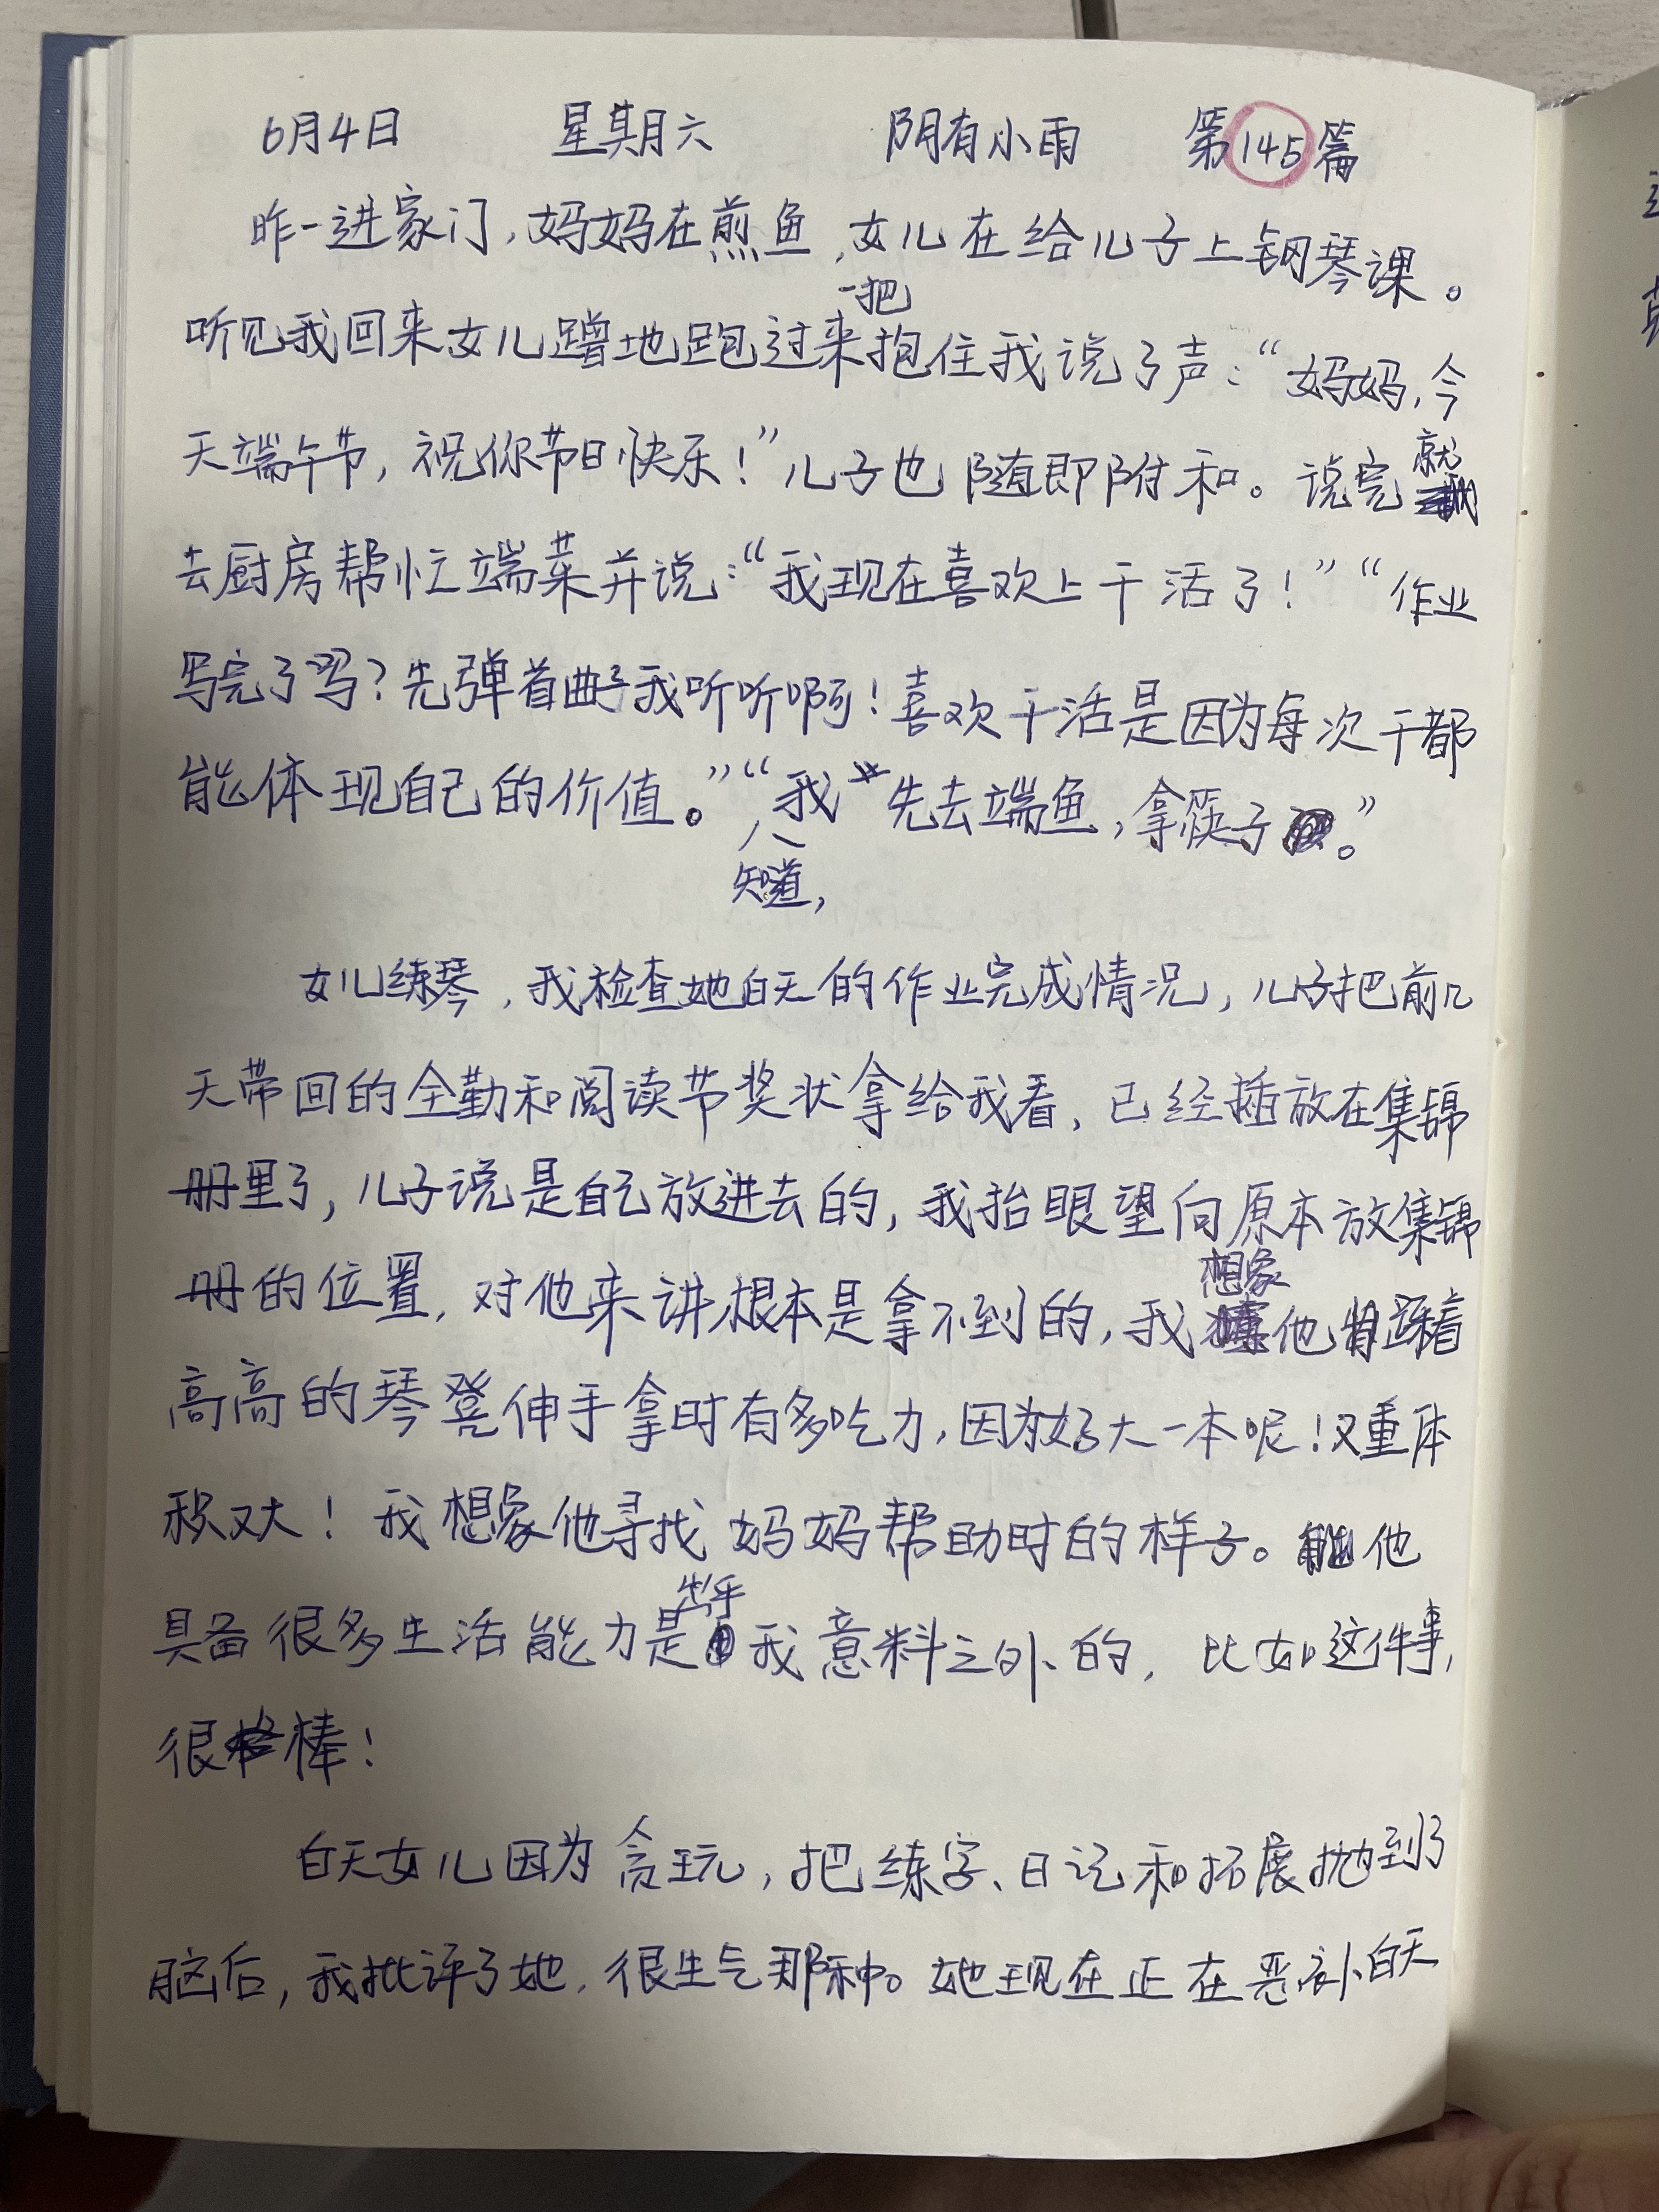 6月4日 星期六 阴有小雨 第145篇
昨一进家门,妈妈在煎鱼,女儿在给儿子上钢琴课。
听见我回来女儿蹭地跑过来一把抱住我说了声:“妈妈,今
天端午节,祝你节日快乐!”儿子也随即附和。说完就
去厨房帮忙端菜并说:“我现在喜欢上干活了!”“作业
写完了吗?先弹首曲子我听听啊!喜欢干活是因为每次干都
能体现自己的价值。”“知道,我先去端鱼,拿筷子。”
女儿练琴,我检查她白天的作业完成情况,儿子把前几
天带回的全勤和阅读节奖状拿给我看,已经插放在集锦
册里了,儿子说是自己放进去的,我抬眼望向原本放集锦
册的位置,对他来讲根本是拿不到的,我想象他踩着
高高的琴凳伸手拿时有多吃力,因为好大一本呢!又重体
积又大!我想象他寻找妈妈帮助时的样子。他
具备很多生活能力是出乎我意料之外的,比如这件事,
很棒!
白天女儿因为贪玩,把练字、日记和拓展抛到了
脑后,我批评了她,很生气那种。她现在正在恶补白天